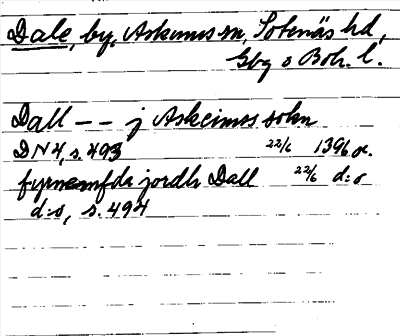 Dale, by, Askums sn, Sotenäs hd,
Gbg o Boh. l.
Dall -- j Askeims sokn
DN 4, s. 493 22/6 1396 or.
jordh Dall 22/6 d:o
d:o, s. 494